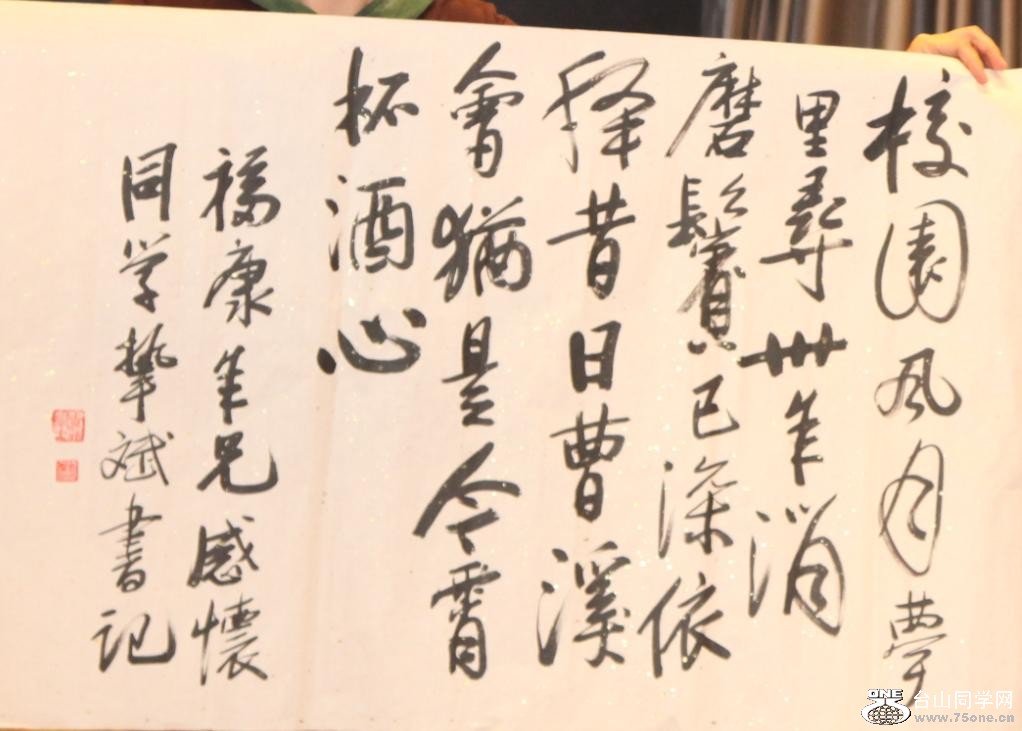 校園風月夢
里尋卌年消
磨鬢已深依
稀昔日曹溪
會猶是今宵
杯酒心
福康年兄感懷
同学摯斌書記
ONE
台山同学网
www.75one.cn